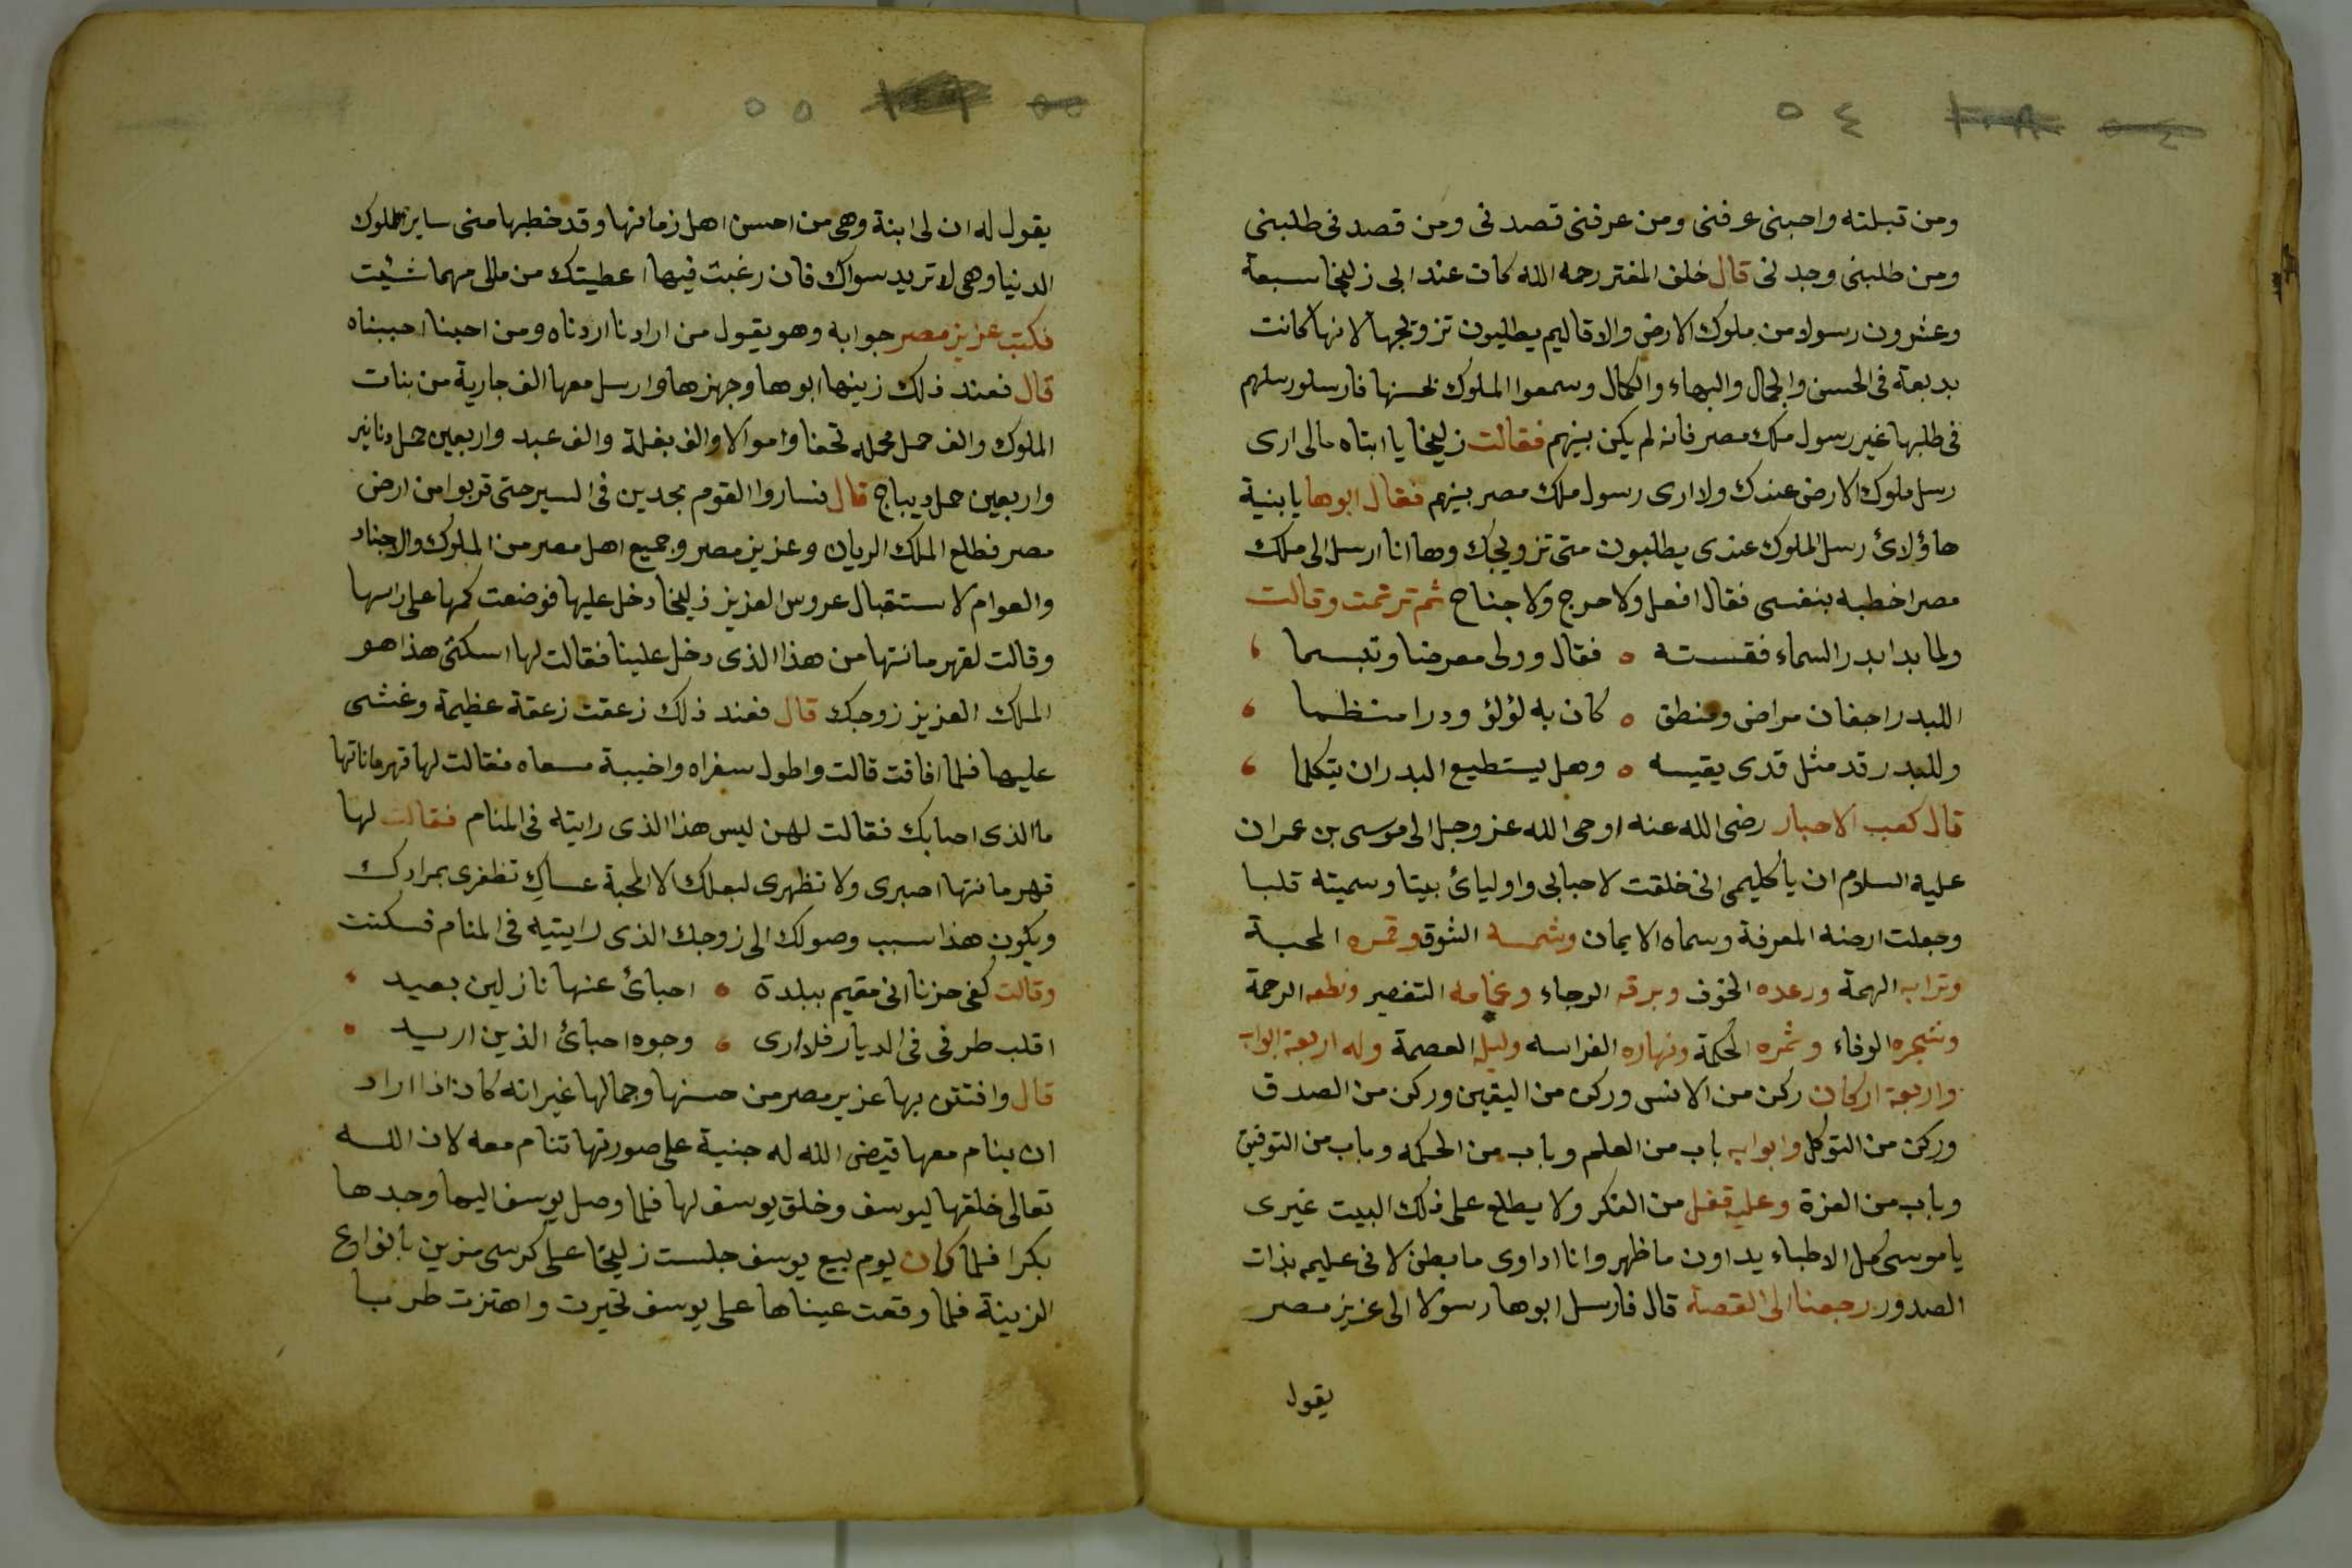 ٥٤
ومن قبلته واحبنى عرفنى ومن عرفنى قصدنى ومن قصدنى طلبنى
ومن طلبنى وجدنى قال خلف المفتر رحمه الله كان عند ابى زليخا سبعة
وعشرون رسولا من ملوك الارض والاقاليم يطلبون تزويجها لانها كانت
بديعة فى الحسن والجمال والبهاء والكمال وسمعوا الملوك بحسنها فارسلو رسلهم
فى طلبها غير رسول ملك مصر فانه لم يكن بينهم فقالت زليخا يا ابتاه مالى ارى
رسل ملوك الارض عندك ولا ارى رسول ملك مصر بينهم فقال ابوها يا بنية
هاؤلائ رسل الملوك عندى يطلبون متى تزويجك وها انا ارسل الى ملك
مصر اخطبه بنفسى فقال افعل ولا حرج ولا جناح ثم ترنمت وقالت
ولما بدا بدر السماء فقسته ه فقال وولى معرضا وتبسما
اللبدر اجفان مراض ومنطق ه كان به لؤلؤ ودرا منتظما
وللبدر قد مثل قدى يقيسه ه وهل يستطيع البدر ان يتكلما
قال كعب الاحبار رضى الله عنه اوحى الله عز وجل الى موسى بن عمران
عليه السلام ان يا كليمى انى خلقت لاحبابى واوليائ بيتا وسميته قلبا
وجعلت ارضه المعرفة وسماه الايمان وشمسه الشوق وقمره المحبة
وترابه الهمة ورعده الخوف وبرقه الرجاء وغمامه التفصر ونطعه الرحمة
وشجره الوفاء وثمره الحكمة ونهاره الفراسه وليله العصمة وله اربعة ابواب
واربعة اركان ركن من الانس وركن من اليقين وركن من الصدق
وركن من التوكل وابوابه باب من العلم وباب من الحكمه وباب من التوفيق
وباب من العزة وعليه قفل من الفكر ولا يطلع على ذلك البيت غيرى
يا موسى كل الاطباء يداون ما ظهر وانا اداوى ما بطن لانى عليم بذات
الصدور رجعنا الى القصة قال فارسل ابوها رسولا الى عزيز مصر
يقول
٥٥
يقول له ان لى ابنة وهى من احسن اهل زمانها وقد خطبها منى ساير ملوك
الدنيا وهى لا تريد سواك فان رغبت فيها اعطيتك من مالى مهما شئت
فكتب عزيز مصر جوابه وهو يقول من ارادنا اردناه ومن احبنا احببناه
قال فعند ذلك زينها ابوها وجهزها وارسل معها الف جارية من بنات
الملوك والف حمل محمله تحفا واموالا والف بغلة والف عبد واربعين حمل دنانير
واربعين حمل ديباج قال فساروا القوم مجدين فى السير حتى قربوا من ارض
مصر فطلع الملك الريان وعزيز مصر وجميع اهل مصر من الملوك والاجناد
والعوام لاستقبال عروس العزيز زليخا دخل عليها فوضعت كمها على راسها
وقالت لقهرمانتها من هذا الذى دخل علينا فقالت لها اسكتى هذا هو
الملك العزيز زوجك قال فعند ذلك زعقت زعقة عظيمة وغشى
عليها فلما افاقت قالت واطول سفراه واخيبة مسعاه فقالت لها قهرماناتها
ما الذى اصابك فقالت لهن ليس هذا الذى رايته فى المنام فقالت لها
قهرمانتها اصبرى ولا تظهرى لبعلك الا المحبة عساك تظفرى بمرادك
ويكون هذا سبب وصولك الى زوجك الذى رايتيه فى المنام فسكتت
وقالت كفى حزنا انى مقيم ببلدة ه احبائ عنها نازلين بعيد
اقلب طرفى فى الديار فلا ارى ه وجوه احبائ الذين اريد
قال وافتتن بها عزيز مصر من حسنها وجمالها غير انه كان اذا اراد
ان ينام معها قيض الله له جنية على صورتها تنام معه لان الله
تعالى خلقها ليوسف وخلق يوسف لها فلما وصل يوسف اليها وجدها
بكرا فلما كان يوم بيع يوسف جلست زليخا على كرسى مزين بانواع
الزينة فلما وقعت عيناها على يوسف تحيرت واهتزت طربا